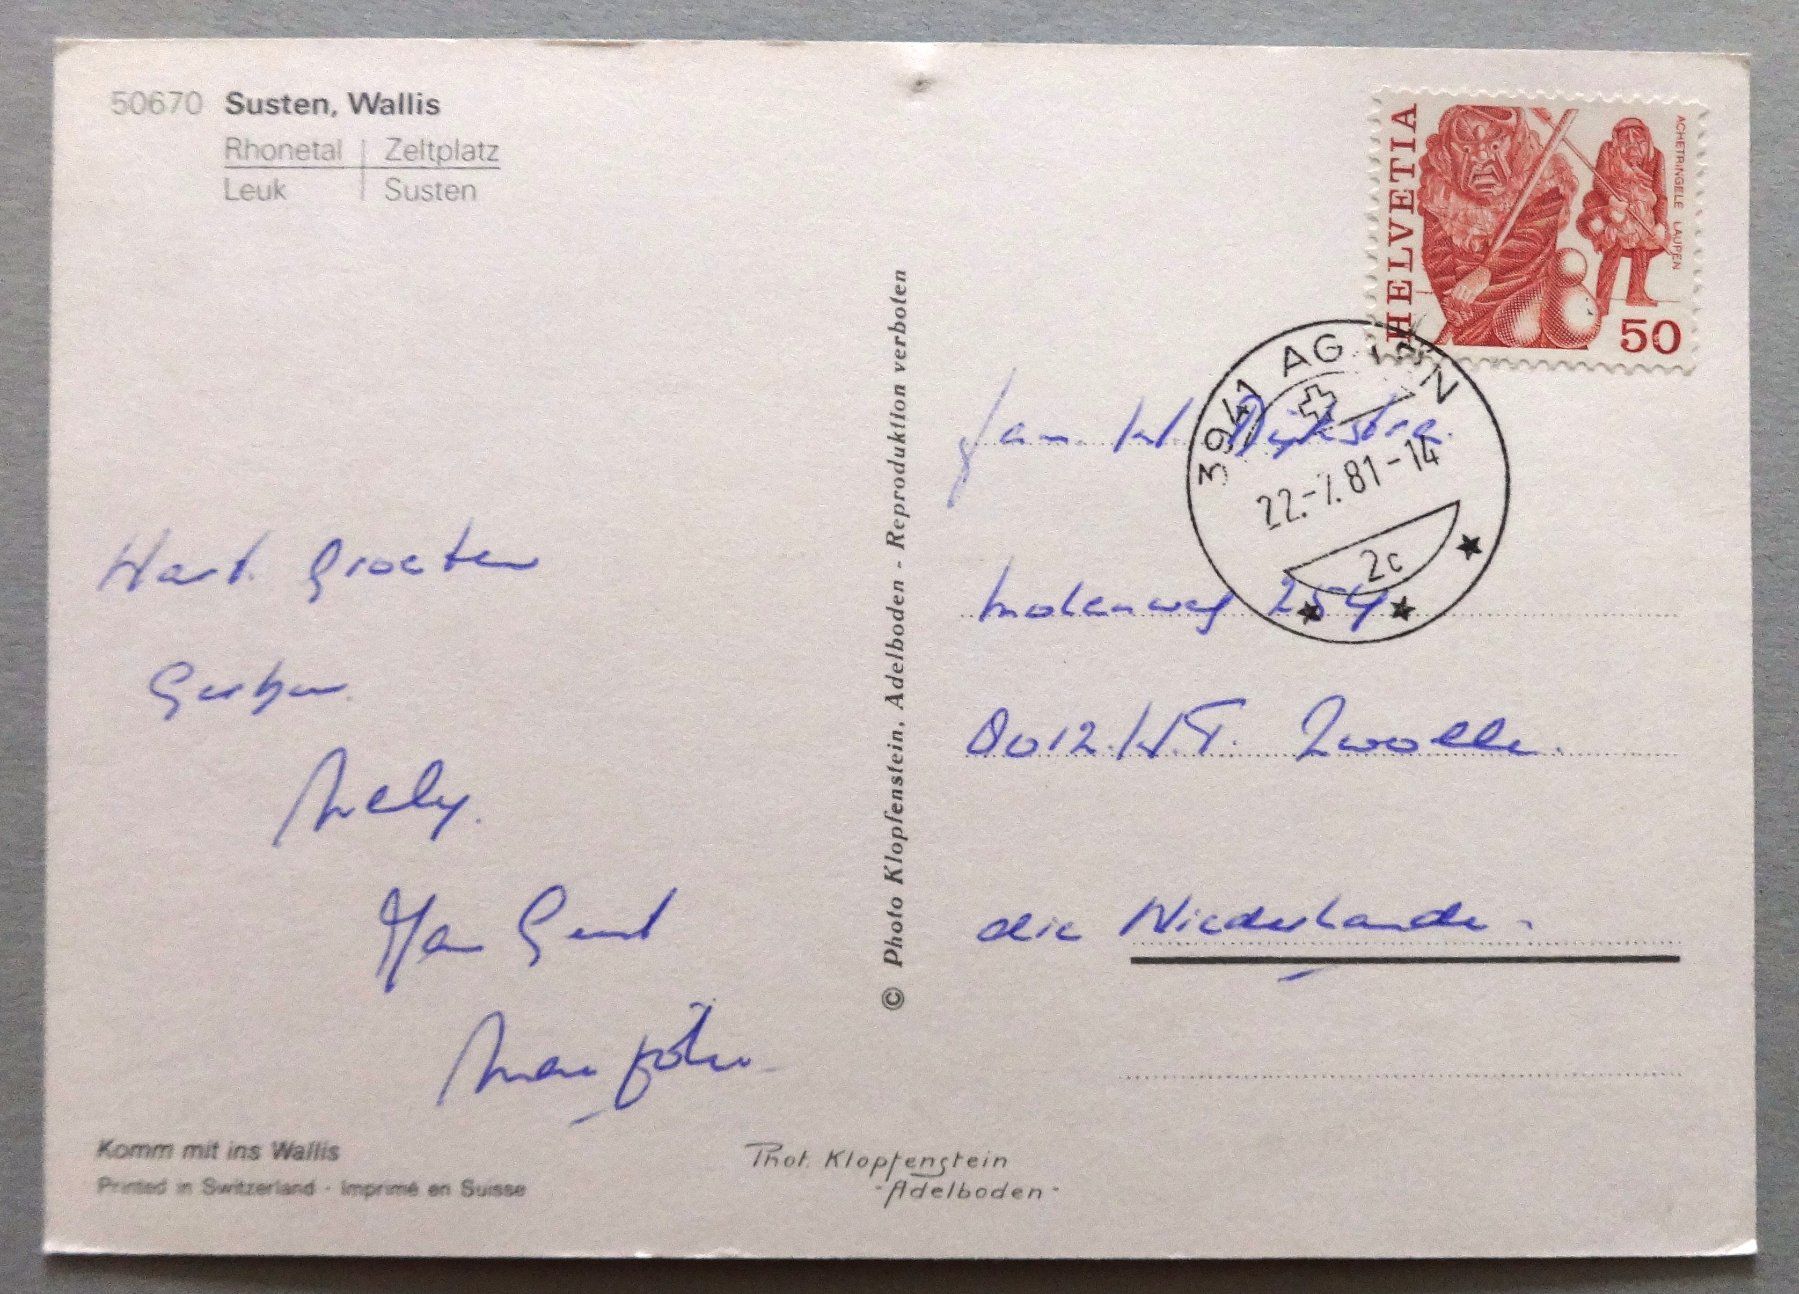 50670 Susten, Wallis
Rhonetal Zeltplatz
Leuk Susten
HELVETIA
ACHETRINGELE LAUPEN
50
3941 AG N
22.-7.81-14
2c
Hart. Groeten
Nely.
Photo Klopfenstein, Adelboden - Reproduktion verboten
©
Fam. W. Dijkstra.
Molenweg 254
8012.W.T. Zwolle.
die Niederlande.
Komm mit ins Wallis
Printed in Switzerland - Imprimé en Suisse
Phot. Klopfenstein
-Adelboden-